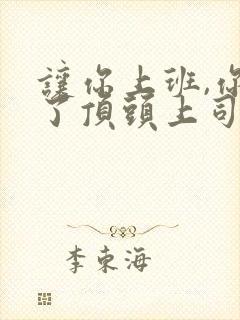 讓你上班,你
了頂頭上司
李東海